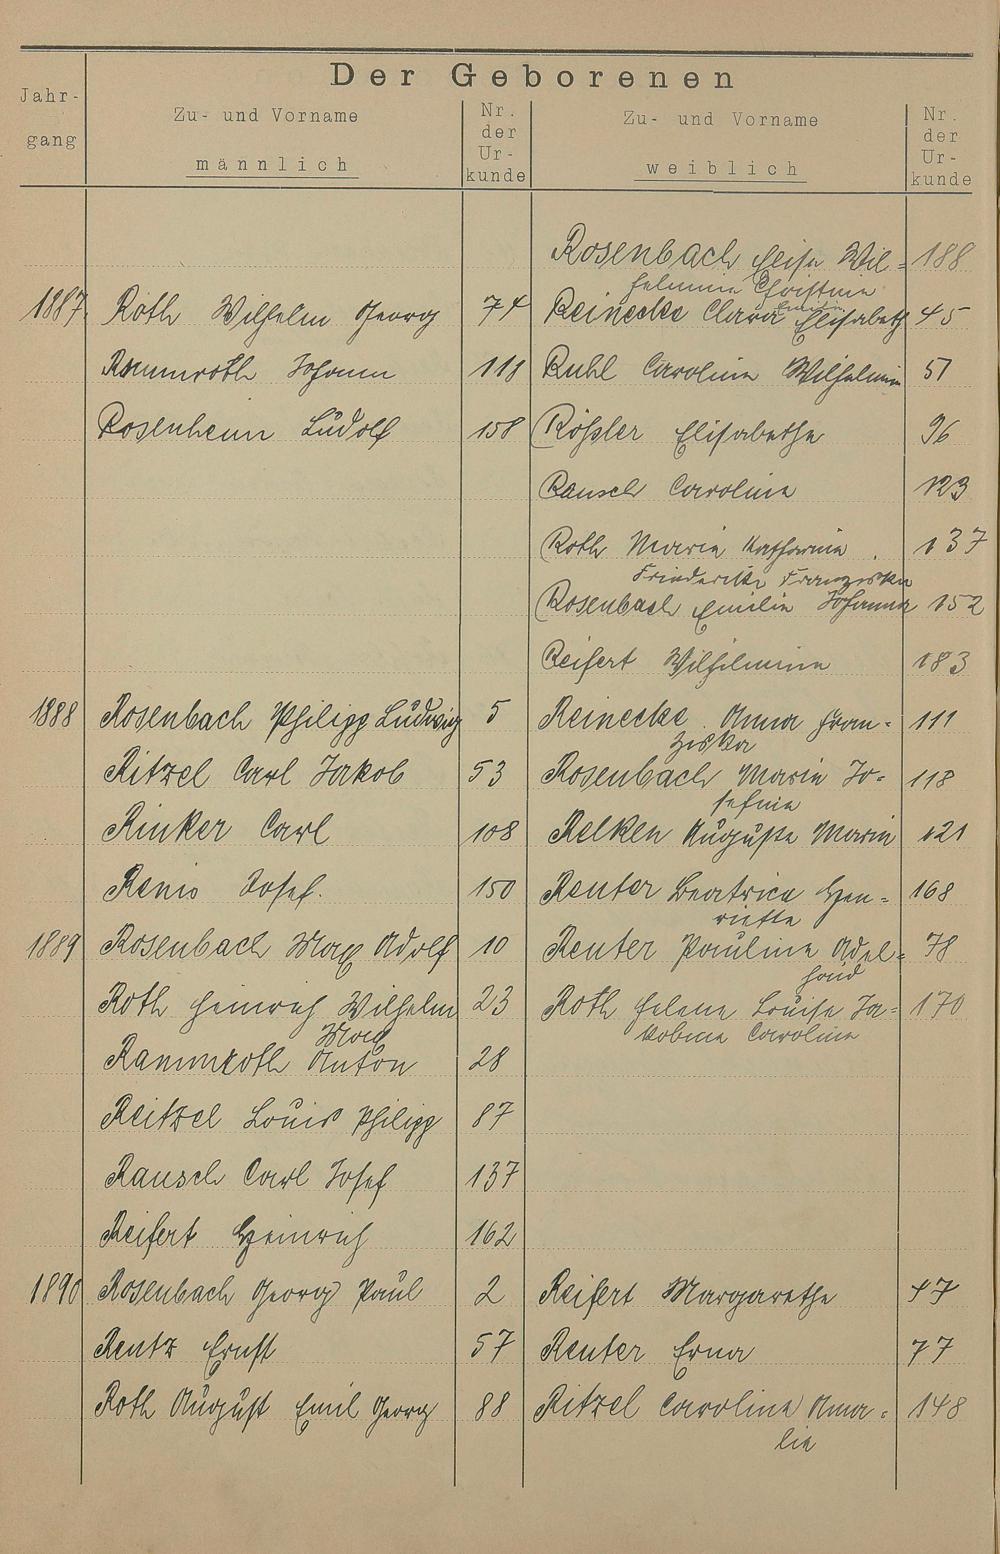 Der Geborenen
Jahr-
gang
Zu- und Vorname
männlich
Nr.
der
Ur-
kunde
Zu- und Vorname
weiblich
Nr.
der
Ur-
kunde
Rosenbach Luise Wil= 188
helmine Christine
1887 Roth Wilhelm Georg 74 Reinecke Clara Emilie Elisabeth 45
Rammroth Johann 111 Ruhl Caroline Wilhelmine 51
Rosenheim Ludolf 158 Rößler Elisabethe 96
Rausch Caroline 123
Roth Maria Katharina 137
Friederike Franziska
Rosenbach Emilie Johanna 152
Reifert Wilhelmine 183
1888 Rosenbach Philipp Ludwig 5 Reinecke Anna Fran= 111
ziska
Ritzel Carl Jakob 53 Rosenbach Maria Jo= 118
sefine
Rinker Carl 108 Relken Auguste Maria 121
Josef. 150 Reuter Beatrice Hen= 168
riette
1889 Rosenbach Max Adolf 10 Reuter Pauline Adel= 78
heid
Roth Heinrich Wilhelm 23 Roth Helene Louise Ja= 170
Max kobine Caroline
Rammroth Anton 28
Reitzel Louis Philipp 87
Rausch Carl Josef 137
Reifert Heinrich 162
1890 Rosenbach Georg Paul 2 Reifert Margarethe 47
Rentz Ernst 57 Reuter Erna 77
Roth August Emil Georg 88 Ritzel Caroline Ama= 148
lie